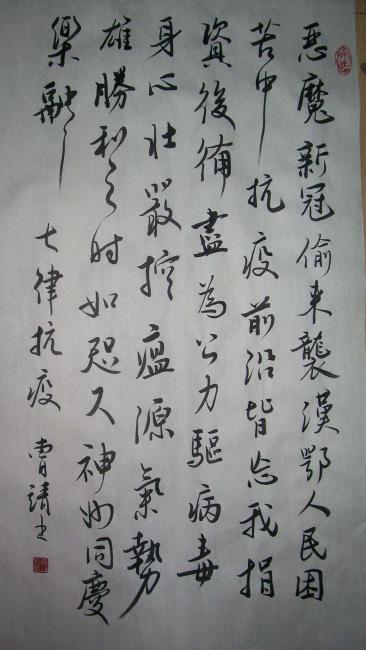 惡魔新冠偷来襲漢鄂人民困
苦中抗疫前沿皆忘我捐
資後備盡為公力驅病毒
身心壮嚴控瘟源氣勢
雄勝利之时如咫尺神州同慶
樂融融
七律抗疫 曹靖书